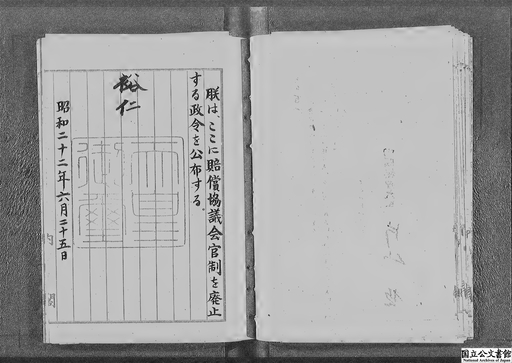 朕は、ここに賠償協議会官制を廃止
する政令を公布する。
裕仁
天皇御璽
昭和二十二年六月二十五日
内閣
国立公文書館
National Archives of Japan